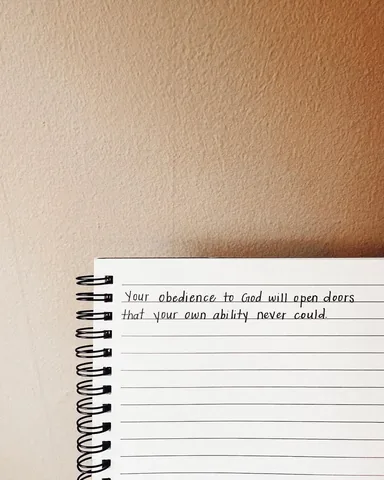 Your obedience to God will open doors
that your own ability never could.